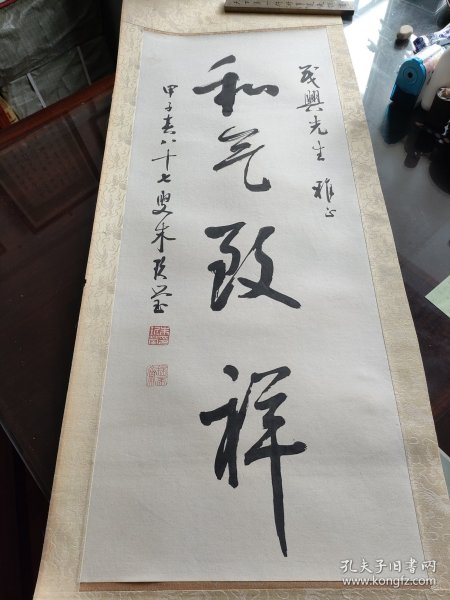 茂興先生 雅正
和气致祥
甲子春八十七叟朱玖瑩
孔夫子旧书网
www.kongfz.com